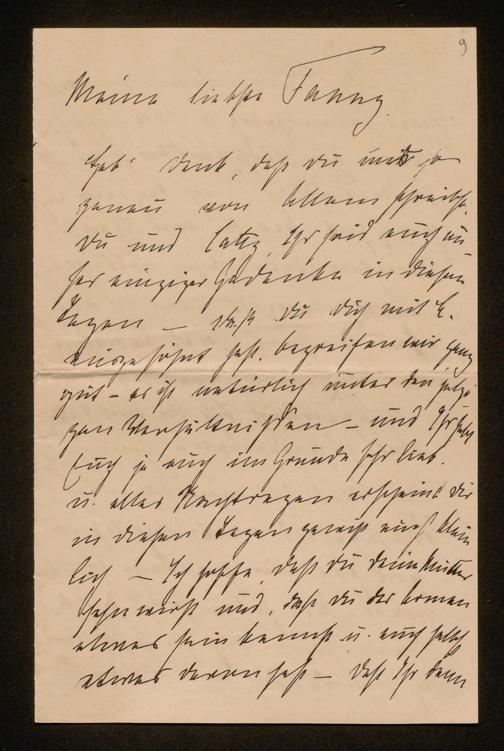 9
Meine liebste Fanny.
Hab' Dank, daß du uns so
genau von Allem schreibst,
Du und Cathy, Ihr seid auch un
ser einziger Gedanke in diesen
Tagen – daß du dich mit E.
ausgesöhnt hast, begreifen wir ganz
gut – es ist natürlich unter den jetzi
gen Verhältnissen – und Ihr habt
Euch ja auch im Grunde sehr lieb.
u. alles Nachtragen erscheint dir
in diesen Tagen gewiß auch klein
lich – Ich hoffe, daß du deine Mutter
sehn wirst und, daß du der armen
etwas sein kannst u. auch selbst
etwas daran hast – daß Ihr dann